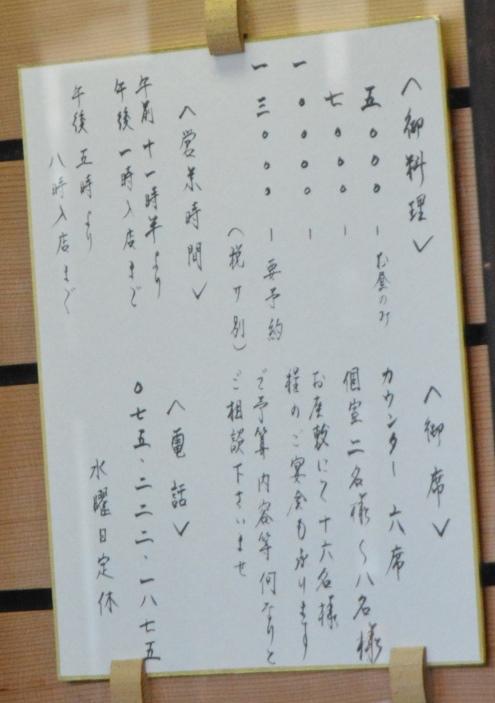 〈御料理〉
五〇〇〇ーお昼のみ
七〇〇〇ー
一〇〇〇〇ー
一三〇〇〇ー要予約
(税サ別)
〈営業時間〉
午前十一時半より
午後一時入店まで
午後五時より
八時入店まで
〈御席〉
カウンター六席
個室二名様〜八名様
お座敷にて十六名様
程のご宴会も承ります
ご予算内容等何なりと
ご相談下さいませ
〈電話〉
〇七五・二二二・一八七五
水曜日定休